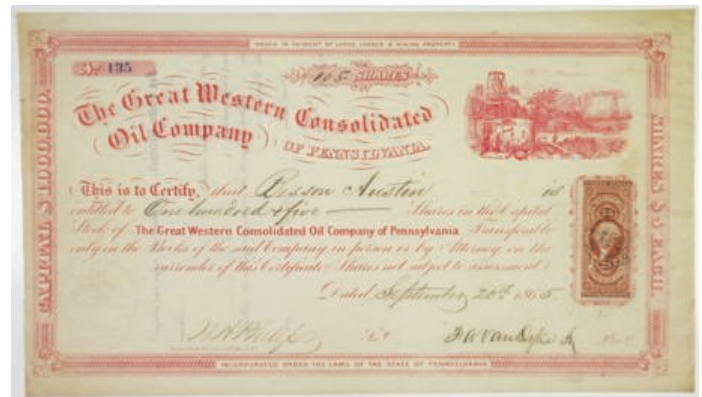 ISSUED IN PAYMENT OF LANDS, LEASES & MINING PROPERTY
No 135
105 SHARES
The Great Western Consolidated
Oil Company OF PENNSYLVANIA.
This is to Certify, that Besson Austin is
entitled to One hundred & five Shares in the Capital
Stock of The Great Western Consolidated Oil Company of Pennsylvania Transferable
only on the Books of the said Company, in person or by Attorney, on the
surrender of this Certificate. Shares not subject to assessment.
Dated September 26th 1865.
INCORPORATED UNDER THE LAWS OF THE STATE OF PENNSYLVANIA
CAPITAL $1,000,000.
SHARES $5 EACH.